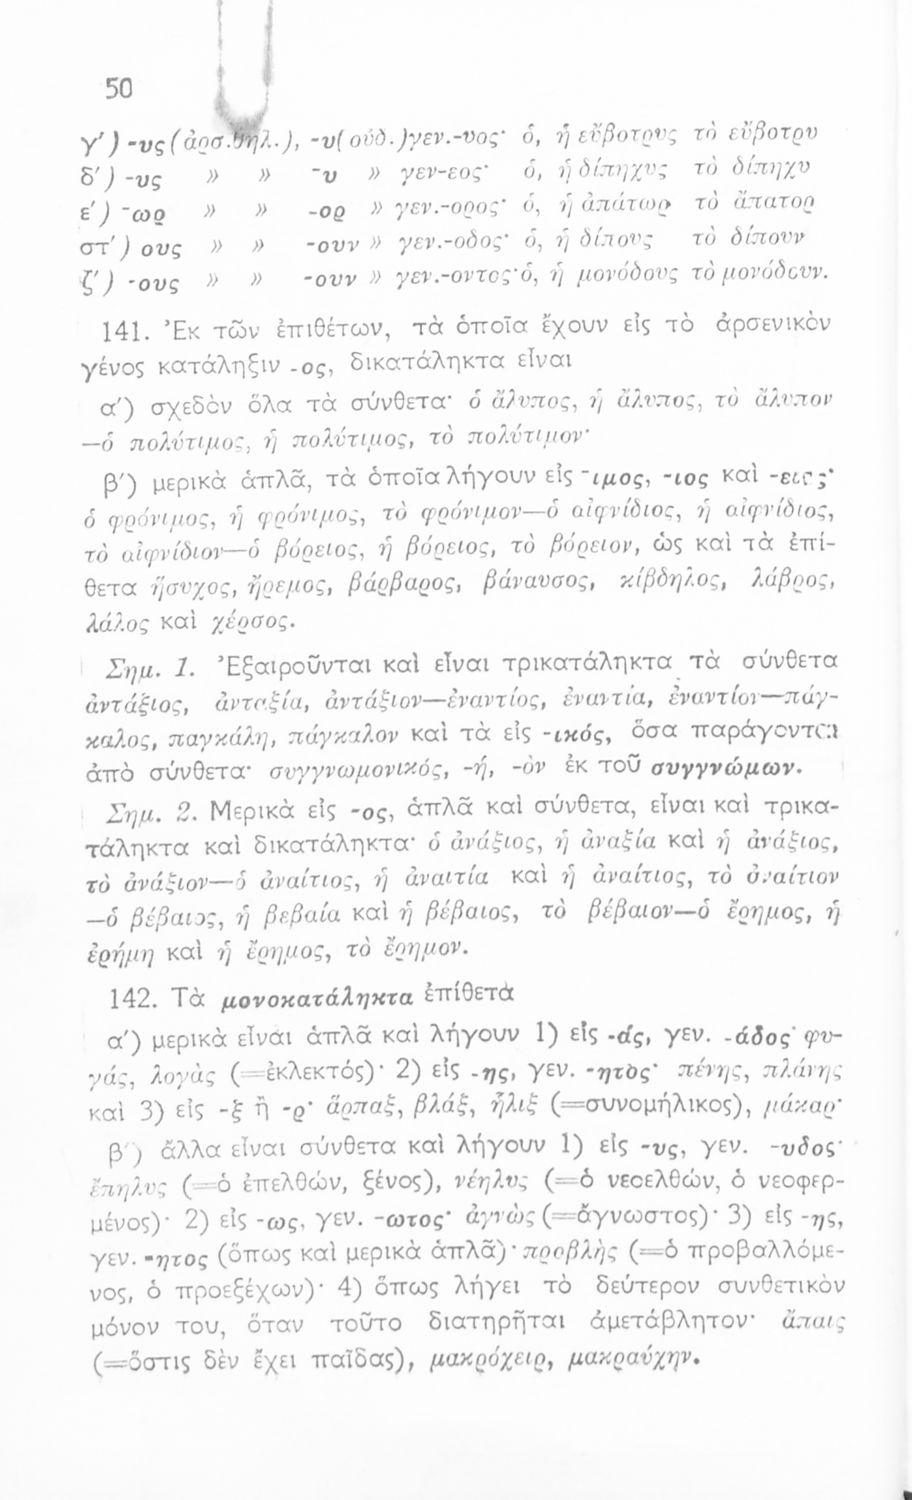 50
γ΄) -υς (ἀρσ.θηλ.), -υ(οὐδ.)γεν.-υος· ὁ, ἡ εὔβοτρυς τὸ εὔβοτρυ
δ΄) -υς » » -υ » γεν-εος· ὁ, ἡ δίπηχυς τὸ δίπηχυ
ε΄) -ωρ » » -ορ » γεν.-ορος· ὁ, ἡ ἀπάτωρ τὸ ἄπατορ
στ΄) ους » » -ουν » γεν.-οδος· ὁ, ἡ δίπους τὸ δίπουν
ζ΄) -ους » » -ουν » γεν.-οντος· ὁ, ἡ μονόδους τὸ μονόδουν.
141. Ἐκ τῶν ἐπιθέτων, τὰ ὁποῖα ἔχουν εἰς τὸ ἀρσενικὸν
γένος κατάληξιν -ος, δικατάληκτα εἶναι
α΄) σχεδὸν ὅλα τὰ σύνθετα· ὁ ἄλυπος, ἡ ἄλυπος, τὸ ἄλυπον
—ὁ πολύτιμος, ἡ πολύτιμος, τὸ πολύτιμον·
β΄) μερικὰ ἁπλᾶ, τὰ ὁποῖα λήγουν εἰς -ιμος, -ιος καὶ -ειος·
ὁ φρόνιμος, ἡ φρόνιμος, τὸ φρόνιμον—ὁ αἰφνίδιος, ἡ αἰφνίδιος,
τὸ αἰφνίδιον—ὁ βόρειος, ἡ βόρειος, τὸ βόρειον, ὡς καὶ τὰ ἐπί-
θετα ἥσυχος, ἤρεμος, βάρβαρος, βάναυσος, κίβδηλος, λάβρος,
λάλος καὶ χέρσος.
Σημ. 1. Ἐξαιροῦνται καὶ εἶναι τρικατάληκτα τὰ σύνθετα
ἀντάξιος, ἀνταξία, ἀντάξιον—ἐναντίος, ἐναντία, ἐναντίον—πάγ-
καλος, παγκάλη, πάγκαλον καὶ τὰ εἰς -ικός, ὅσα παράγονται
ἀπὸ σύνθετα· συγγνωμονικός, -ή, -ὸν ἐκ τοῦ συγγνώμων.
Σημ. 2. Μερικὰ εἰς -ος, ἁπλᾶ καὶ σύνθετα, εἶναι καὶ τρικα-
τάληκτα καὶ δικατάληκτα· ὁ ἀνάξιος, ἡ ἀναξία καὶ ἡ ἀνάξιος,
τὸ ἀνάξιον—ὁ ἀναίτιος, ἡ ἀναιτία καὶ ἡ ἀναίτιος, τὸ ἀναίτιον
—ὁ βέβαιος, ἡ βεβαία καὶ ἡ βέβαιος, τὸ βέβαιον—ὁ ἔρημος, ἡ
ἐρήμη καὶ ἡ ἔρημος, τὸ ἔρημον.
142. Τὰ μονοκατάληκτα ἐπίθετα
α΄) μερικὰ εἶναι ἁπλᾶ καὶ λήγουν 1) εἰς -άς, γεν. -άδος· φυ-
γάς, λογὰς (=ἐκλεκτός)· 2) εἰς -ης, γεν. -ητος· πένης, πλάνης
καὶ 3) εἰς -ξ ἢ -ρ· ἅρπαξ, βλάξ, ἧλιξ (=συνομήλικος), μάκαρ·
β΄) ἄλλα εἶναι σύνθετα καὶ λήγουν 1) εἰς -υς, γεν. -υδος·
ἔπηλυς (=ὁ ἐπελθών, ξένος), νέηλυς (=ὁ νεοελθών, ὁ νεοφερ-
μένος)· 2) εἰς -ως, γεν. -ωτος· ἀγνὼς (=ἄγνωστος)· 3) εἰς -ης,
γεν. -ητος (ὅπως καὶ μερικὰ ἁπλᾶ)· προβλὴς (=ὁ προβαλλόμε-
νος, ὁ προεξέχων)· 4) ὅπως λήγει τὸ δεύτερον συνθετικὸν
μόνον του, ὅταν τοῦτο διατηρῆται ἀμετάβλητον· ἄπαις
(=ὅστις δὲν ἔχει παῖδας), μακρόχειρ, μακραύχην.